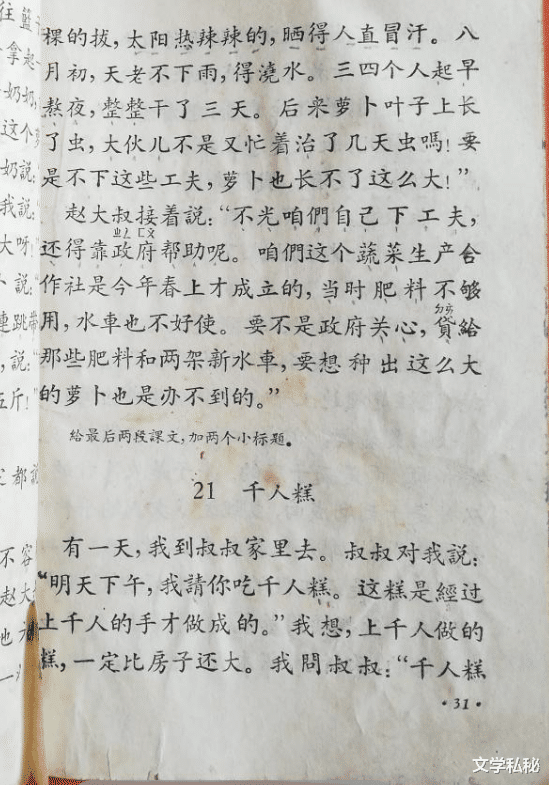 棵的拔，太阳热辣辣的，晒得人直冒汗。八
月初，天老不下雨，得澆水。三四个人起早
熬夜，整整干了三天。后来萝卜叶子上长
了虫，大伙儿不是又忙着治了几天虫嗎！要
是不下这些工夫，萝卜也长不了这么大！”
赵大叔接着說：“不光咱們自己下工夫，
ㄓㄥ ㄈㄨ
还得靠政府帮助呢。咱們这个蔬菜生产合
作社是今年春上才成立的，当时肥料不够
用，水車也不好使。要不是政府关心，貸給
ㄉㄞ
那些肥料和两架新水車，要想种出这么大
的萝卜也是办不到的。”
給最后两段課文，加两个小标題。
21 千人糕
有一天，我到叔叔家里去。叔叔对我說：
“明天下午，我請你吃千人糕。这糕是經过
上千人的手才做成的。”我想，上千人做的
糕，一定比房子还大。我問叔叔：“千人糕
·31·
往篮
拿起
奶奶，
这个
奶說：
我說：
大呀！
說：
連跳帶
，說：
斤！
都說
不容
赵大
也
一
文学私秘